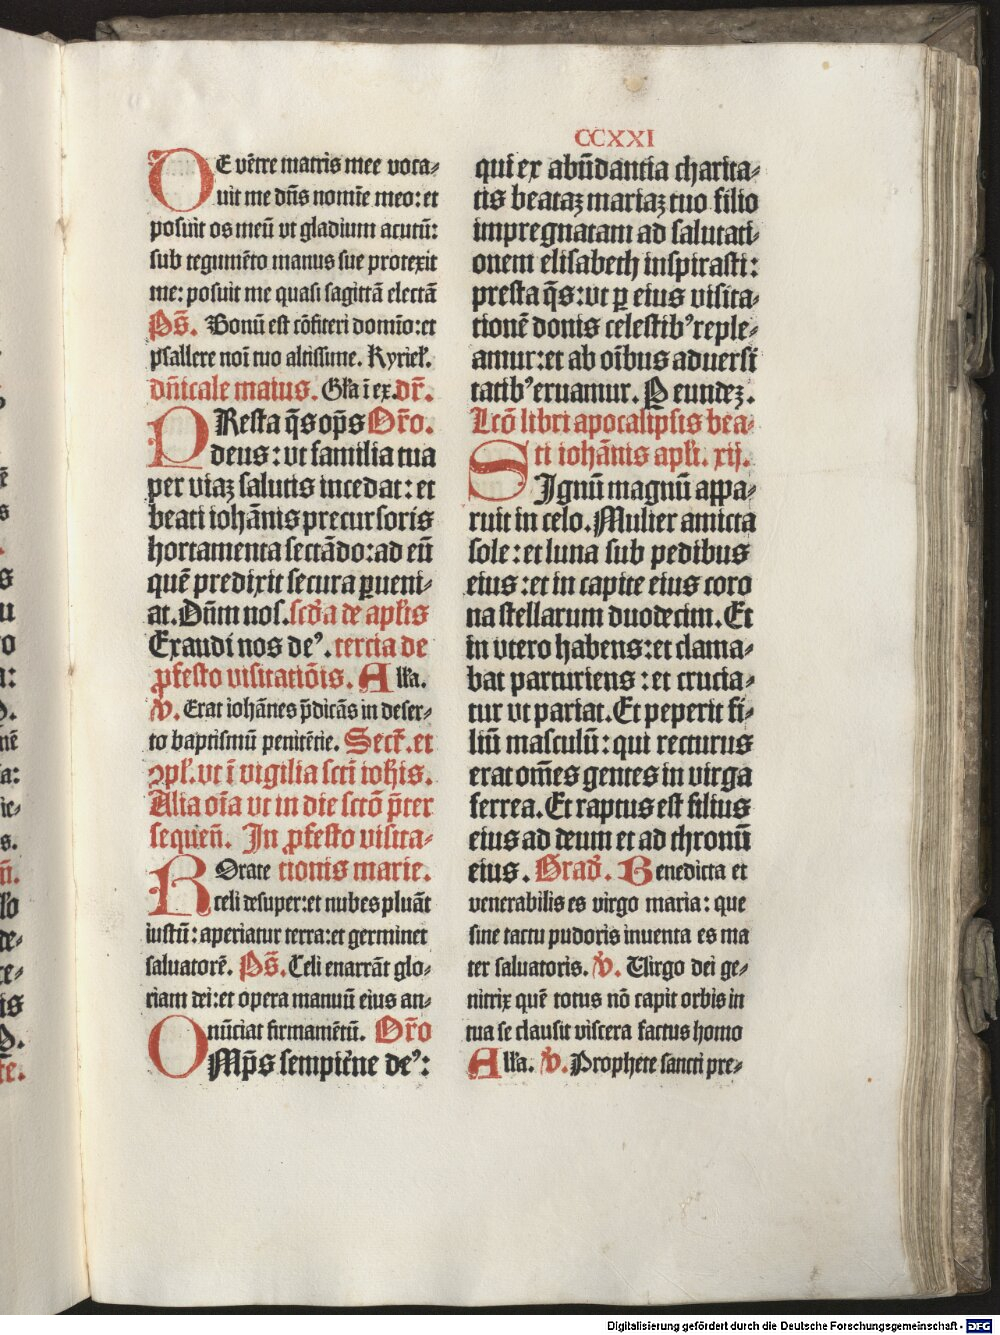 CCXXI
DE vẽtre matris mee voca⸗
uit me dñs nomĩe meo: et
posuit os meũ vt gladium acutũ:
sub tegumẽto manus sue protexit
me: posuit me quasi sagittã electã
Ps̃. Bonũ est cõfiteri domĩo: et
psallere noĩ tuo altissime. Kyriel̃.
dñicale maius. Gl̃a ĩ ex. dr̃.
PResta q̃s op̃s Or̃o.
deus: vt familia tua
per viaꝫ salutis incedat: et
beati iohãnis precursoris
hortamenta sectãdo: ad eũ
quẽ predixit secura ꝑueni⸗
at. Dũm nos̃. scd̃a de apl̃is
Exaudi nos deꝰ. tercia de
ꝓfesto visitatiõis. All̃a.
V̾. Erat iohãnes p̃dicãs in deser⸗
to baptismũ penitẽtie. Secr̃. et
ꝯpl̃. vt ĩ vigilia scti iohis̃.
Alia oĩa vt in die sctõ p̃ter
sequeñ. In ꝓfesto visita⸗
ROrate tionis marie.
celi desuper: et nubes pluãt
iustũ: aperiatur terra: et germinet
saluatorẽ. Ps̃. Celi enarrãt glo⸗
riam dei: et opera manuũ eius an⸗
nũciat firmamẽtũ. Or̃o
OMp̃s sempit̾ne deꝰ:
qui ex abũdantia charita⸗
tis beataꝫ mariaꝫ tuo filio
impregnatam ad salutati⸗
onem elisabeth inspirasti:
presta q̃s: vt ꝑ eius visita⸗
tionẽ donis celestibꝰ reple⸗
amur: et ab oĩbus aduersi
tatibꝰ eruamur. P eundeꝫ.
Lcõ libri apocalipsis bea⸗
ti iohãnis apl̃i. xij.
SIgnũ magnũ appa⸗
ruit in celo. Mulier amicta
sole: et luna sub pedibus
eius: et in capite eius coro
na stellarum duodecim. Et
in vtero habens: et clama⸗
bat parturiens: et crucia⸗
tur vt pariat. Et peperit fi⸗
liũ masculũ: qui recturus
erat om̃es gentes in virga
ferrea. Et raptus est filius
eius ad deum et ad thronũ
eius. Grad̃. Benedicta et
venerabilis es virgo maria: que
sine tactu pudoris inuenta es ma
ter saluatoris. V̾. Virgo dei ge⸗
nitrix quẽ totus nõ capit orbis in
tua se clausit viscera factus homo
All̃a. V̾. Prophete sancti pre⸗
Digitalisierung gefördert durch die Deutsche Forschungsgemeinschaft - DFG